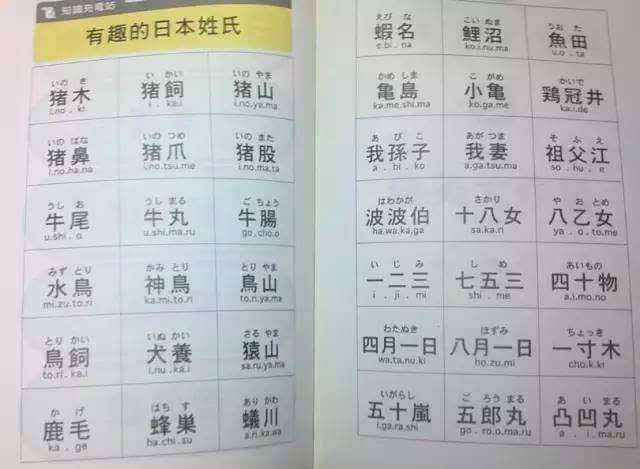 知識充電站
有趣的日本姓氏
いの き いの かい いの やま
猪木 猪飼 猪山
i.no . ki i . ka.i i.no.ya.ma
いの はな いの つめ いの また
猪鼻 猪爪 猪股
i.no.ha.na i.no.tsu.me i.no.ma.ta
うし お うし まる ご ちょう
牛尾 牛丸 牛腸
u.shi . o u.shi.ma.ru go.cho.o
みず とり かみ とり とり やま
水鳥 神鳥 鳥山
mi.zu.to.ri ka.mi.to.ri to.ri.ya.ma
とり かい いぬ かい さる やま
鳥飼 犬養 猿山
to.ri.ka.i i.nu . ka.i sa.ru.ya.ma
か げ はち す あり かわ
鹿毛 蜂巣 蟻川
ka . ge ha.chi.su a.ri.ka.wa
えび な こい ぬま うお た
蝦名 鯉沼 魚田
e.bi . na ko.i.nu.ma u.o . ta
かめ しま こ がめ かいで
亀島 小亀 鶏冠井
ka.me.shi.ma ko.ga.me ka.i.de
あ び こ あが つま そ ふ え
我孫子 我妻 祖父江
a . bi . ko a.ga.tsu.ma so . hu . e
はわかが さかり や おと め
波波伯 十八女 八乙女
ha.wa.ka.ga sa.ka.ri ya . o.to.me
い じ み し め あいもの
一二三 七五三 四十物
i . ji . mi shi . me a.i.mo.no
わたぬき ほずみ ちょっき
四月一日 八月一日 一寸木
wa.ta.nu.ki ho.zu.mi cho.k.ki
いがらし ご ろう まる あ い まる
五十嵐 五郎丸 凸凹丸
i.ga.ra.shi go . ro.o.ma.ru a . i.ma.ru